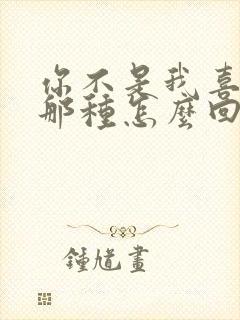 你不是我喜
那種怎麼回
鍾馗畫